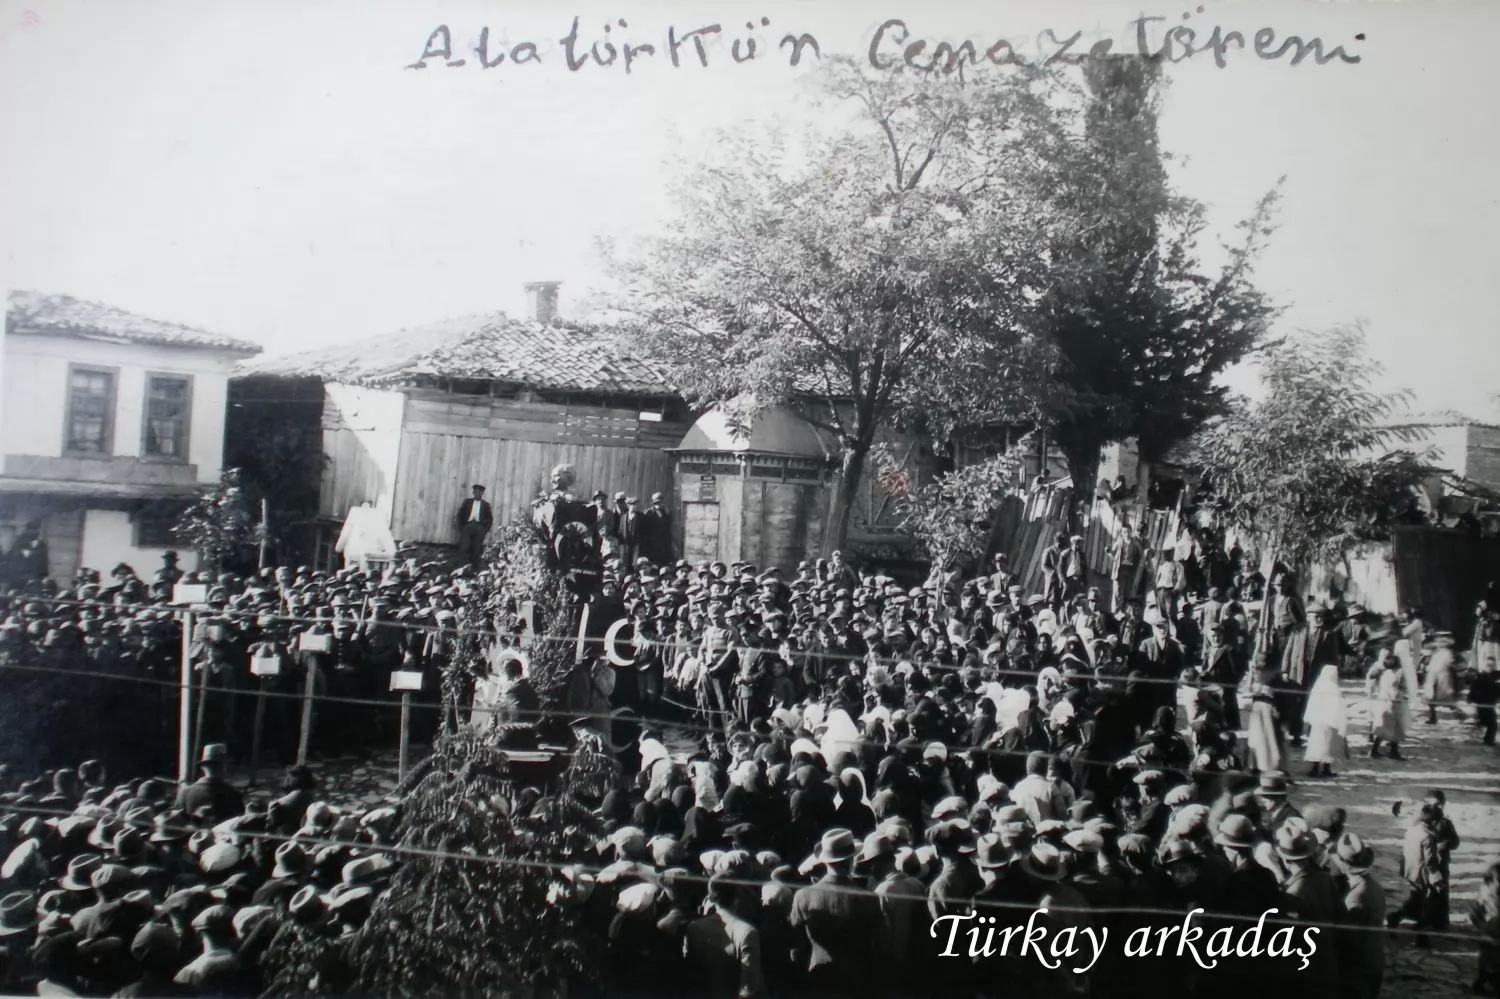 Atatürk'ün Cenaze töreni
Türkay arkadaş